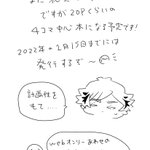 ですが20Pくらいの
4コマ中心本になる予定です!
2022年2月15日までには
発行するで〜
計画性を
もて....
webオンリーあわせの